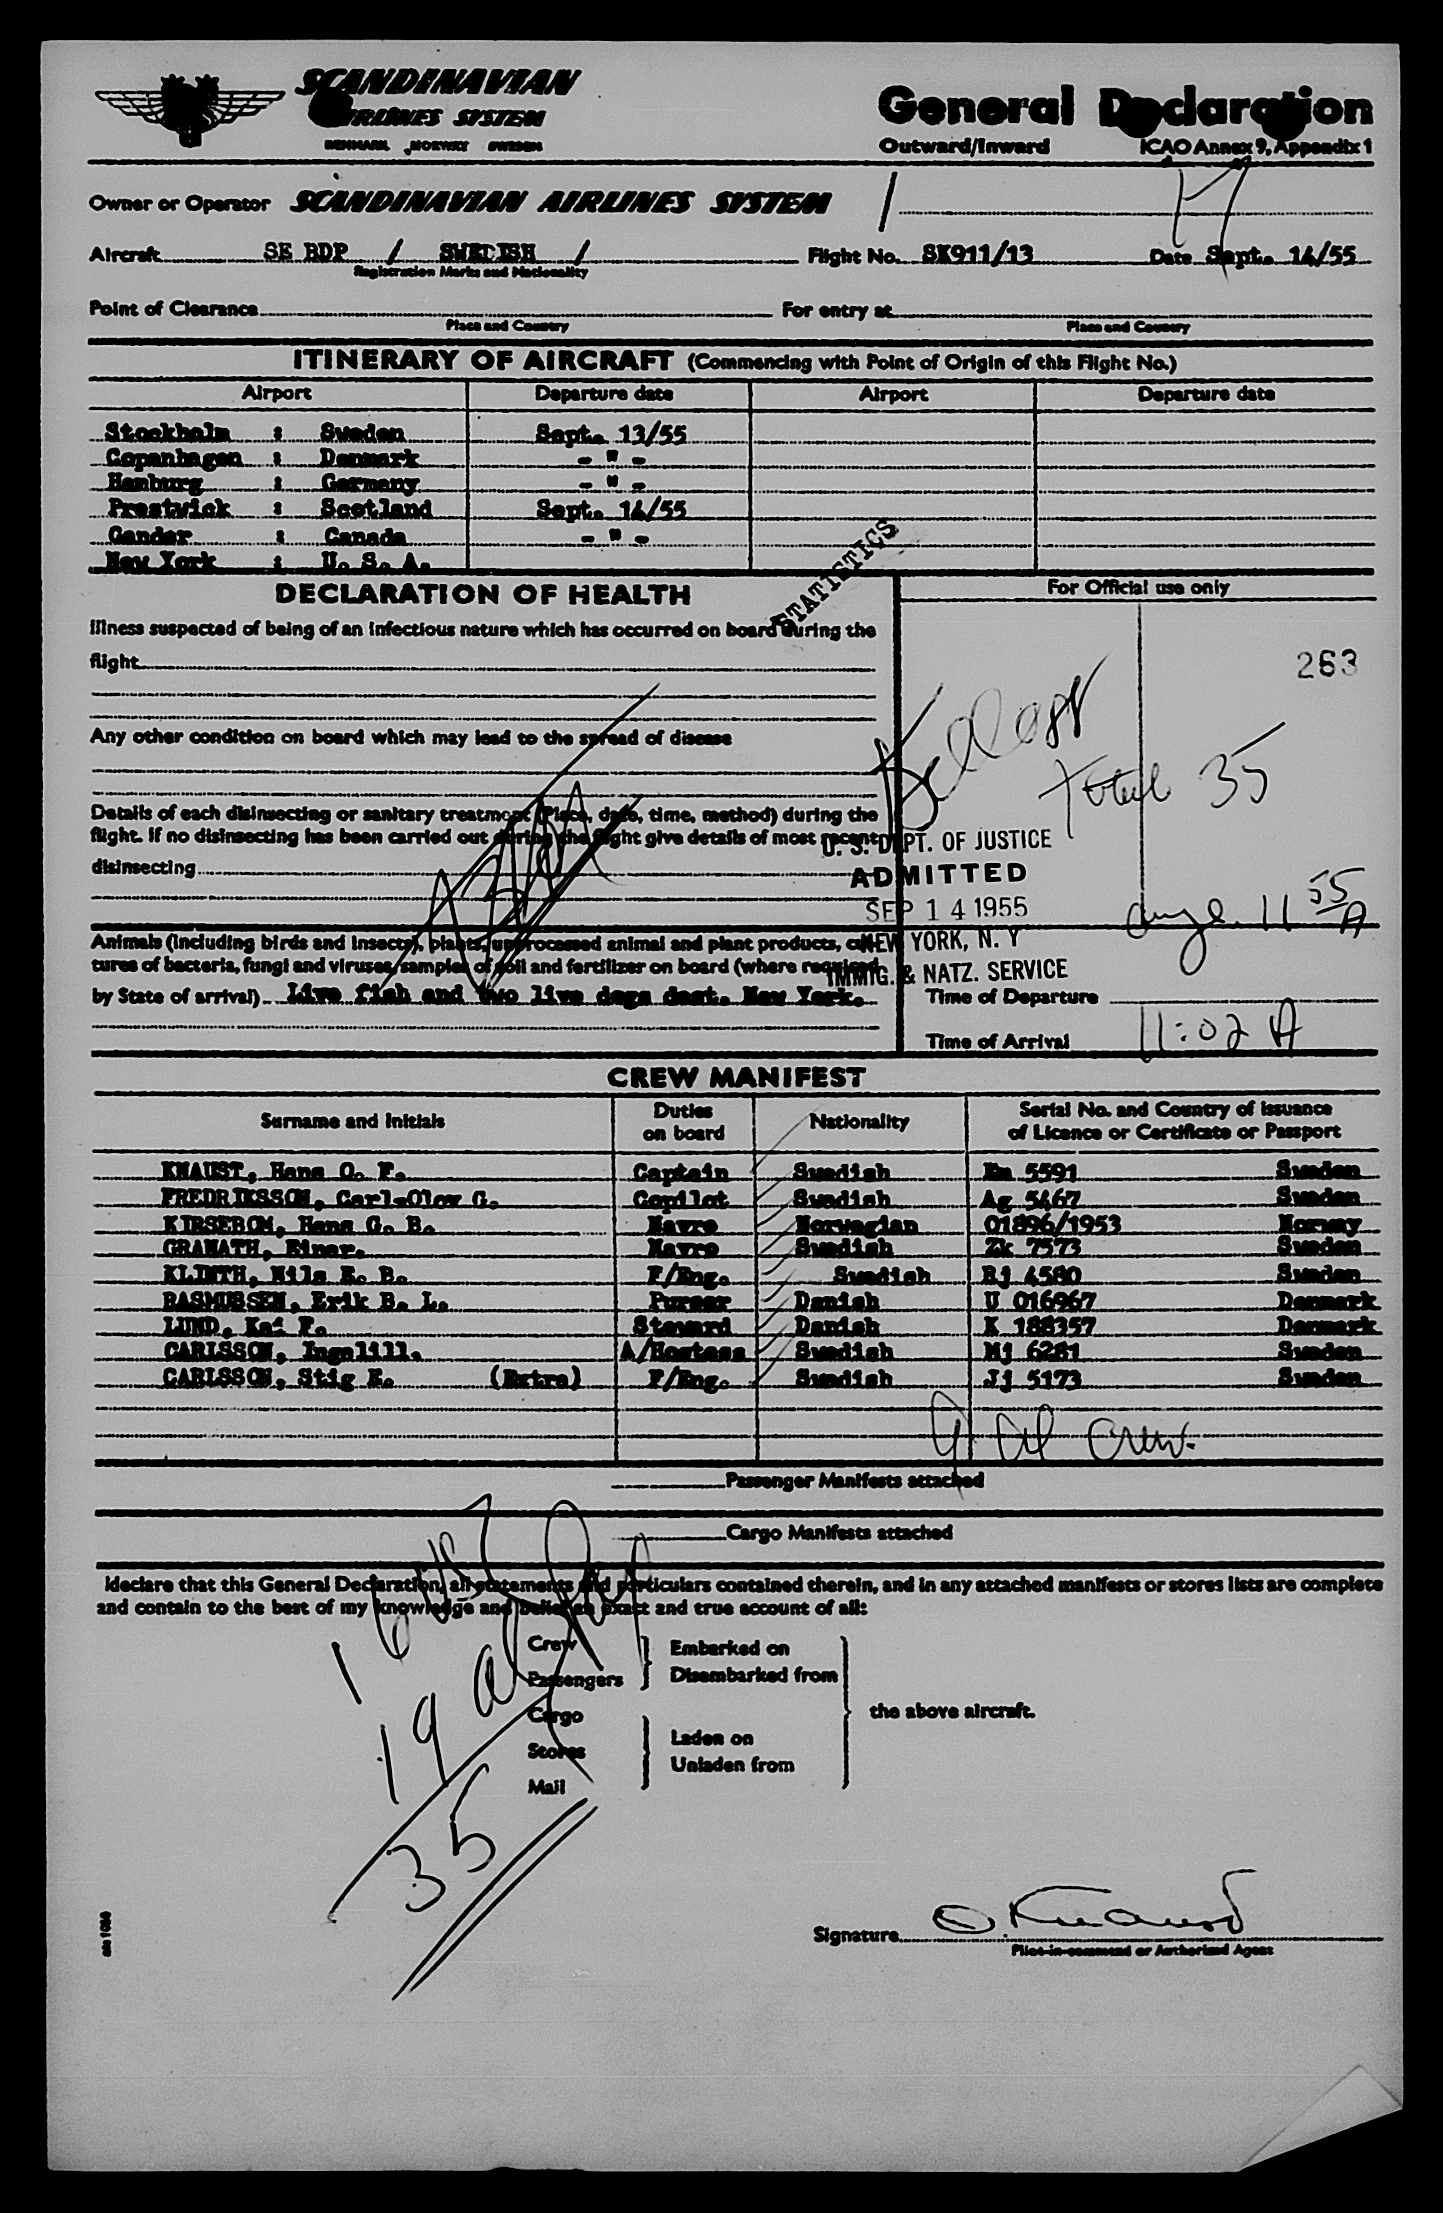 SCANDINAVIAN
AIRLINES SYSTEM
DENMARK NORWAY SWEDEN
General Declaration
Outward/Inward ICAO Annex 9, Appendix 1
Owner or Operator SCANDINAVIAN AIRLINES SYSTEM /
Aircraft SE BDP / SWEDISH / Flight No. SK911/13 Date Sept. 14/55
Registration Marks and Nationality
Point of Clearance For entry at
Place and Country Place and Country
ITINERARY OF AIRCRAFT (Commencing with Point of Origin of this Flight No.)
Airport Departure date Airport Departure date
Stockholm : Sweden Sept. 13/55
Copenhagen : Denmark - " -
Hamburg : Germany - " -
Prestwick : Scotland Sept. 14/55
Gander : Canada - " -
New York : U. S. A.
STATISTICS
DECLARATION OF HEALTH
Illness suspected of being of an infectious nature which has occurred on board during the
flight
Any other condition on board which may lead to the spread of disease
Details of each disinsecting or sanitary treatment (Place, date, time, method) during the
flight. If no disinsecting has been carried out during the flight give details of most recent
disinsecting
Animals (including birds and insects), plants, unprocessed animal and plant products, cul-
tures of bacteria, fungi and viruses, samples of soil and fertilizer on board (where required
by State of arrival) Live fish and two live dogs dest. New York.
For Official use only
263
Total 35
U. S. DEPT. OF JUSTICE
ADMITTED
SEP 14 1955
NEW YORK, N. Y
IMMIG. & NATZ. SERVICE
11 55 A
Time of Departure
Time of Arrival 11:02 A
CREW MANIFEST
Surname and Initials Duties on board Nationality Serial No. and Country of issuance of Licence or Certificate or Passport
KNAUST, Hans O. F. Captain Swedish Em 5591 Sweden
FREDRIKSSON, Carl-Olov G. Copilot Swedish Ag 5467 Sweden
KIRSEBOM, Hans G. B. Navro Norwegian 01896/1953 Norway
GRANATH, Einar. Navro Swedish Zk 7573 Sweden
KLINTH, Nils E. B. F/Eng. Swedish Rj 4580 Sweden
RASMUSSEN, Erik B. L. Purser Danish U 016967 Denmark
LUND, Kai F. Steward Danish K 188357 Denmark
CARLSSON, Ingalill. A/Hostess Swedish Mj 6281 Sweden
CARLSSON, Stig E. (Extra) F/Eng. Swedish Jj 5173 Sweden
9 Al Crew.
Passenger Manifests attached
Cargo Manifests attached
I declare that this General Declaration, all statements and particulars contained therein, and in any attached manifests or stores lists are complete
and contain to the best of my knowledge and belief an exact and true account of all:
Crew Embarked on
Passengers Disembarked from
Cargo the above aircraft.
Stores Laden on
Mail Unladen from
16 US
19 al
35
Signature O Knaust
Pilot-in-command or Authorized Agent